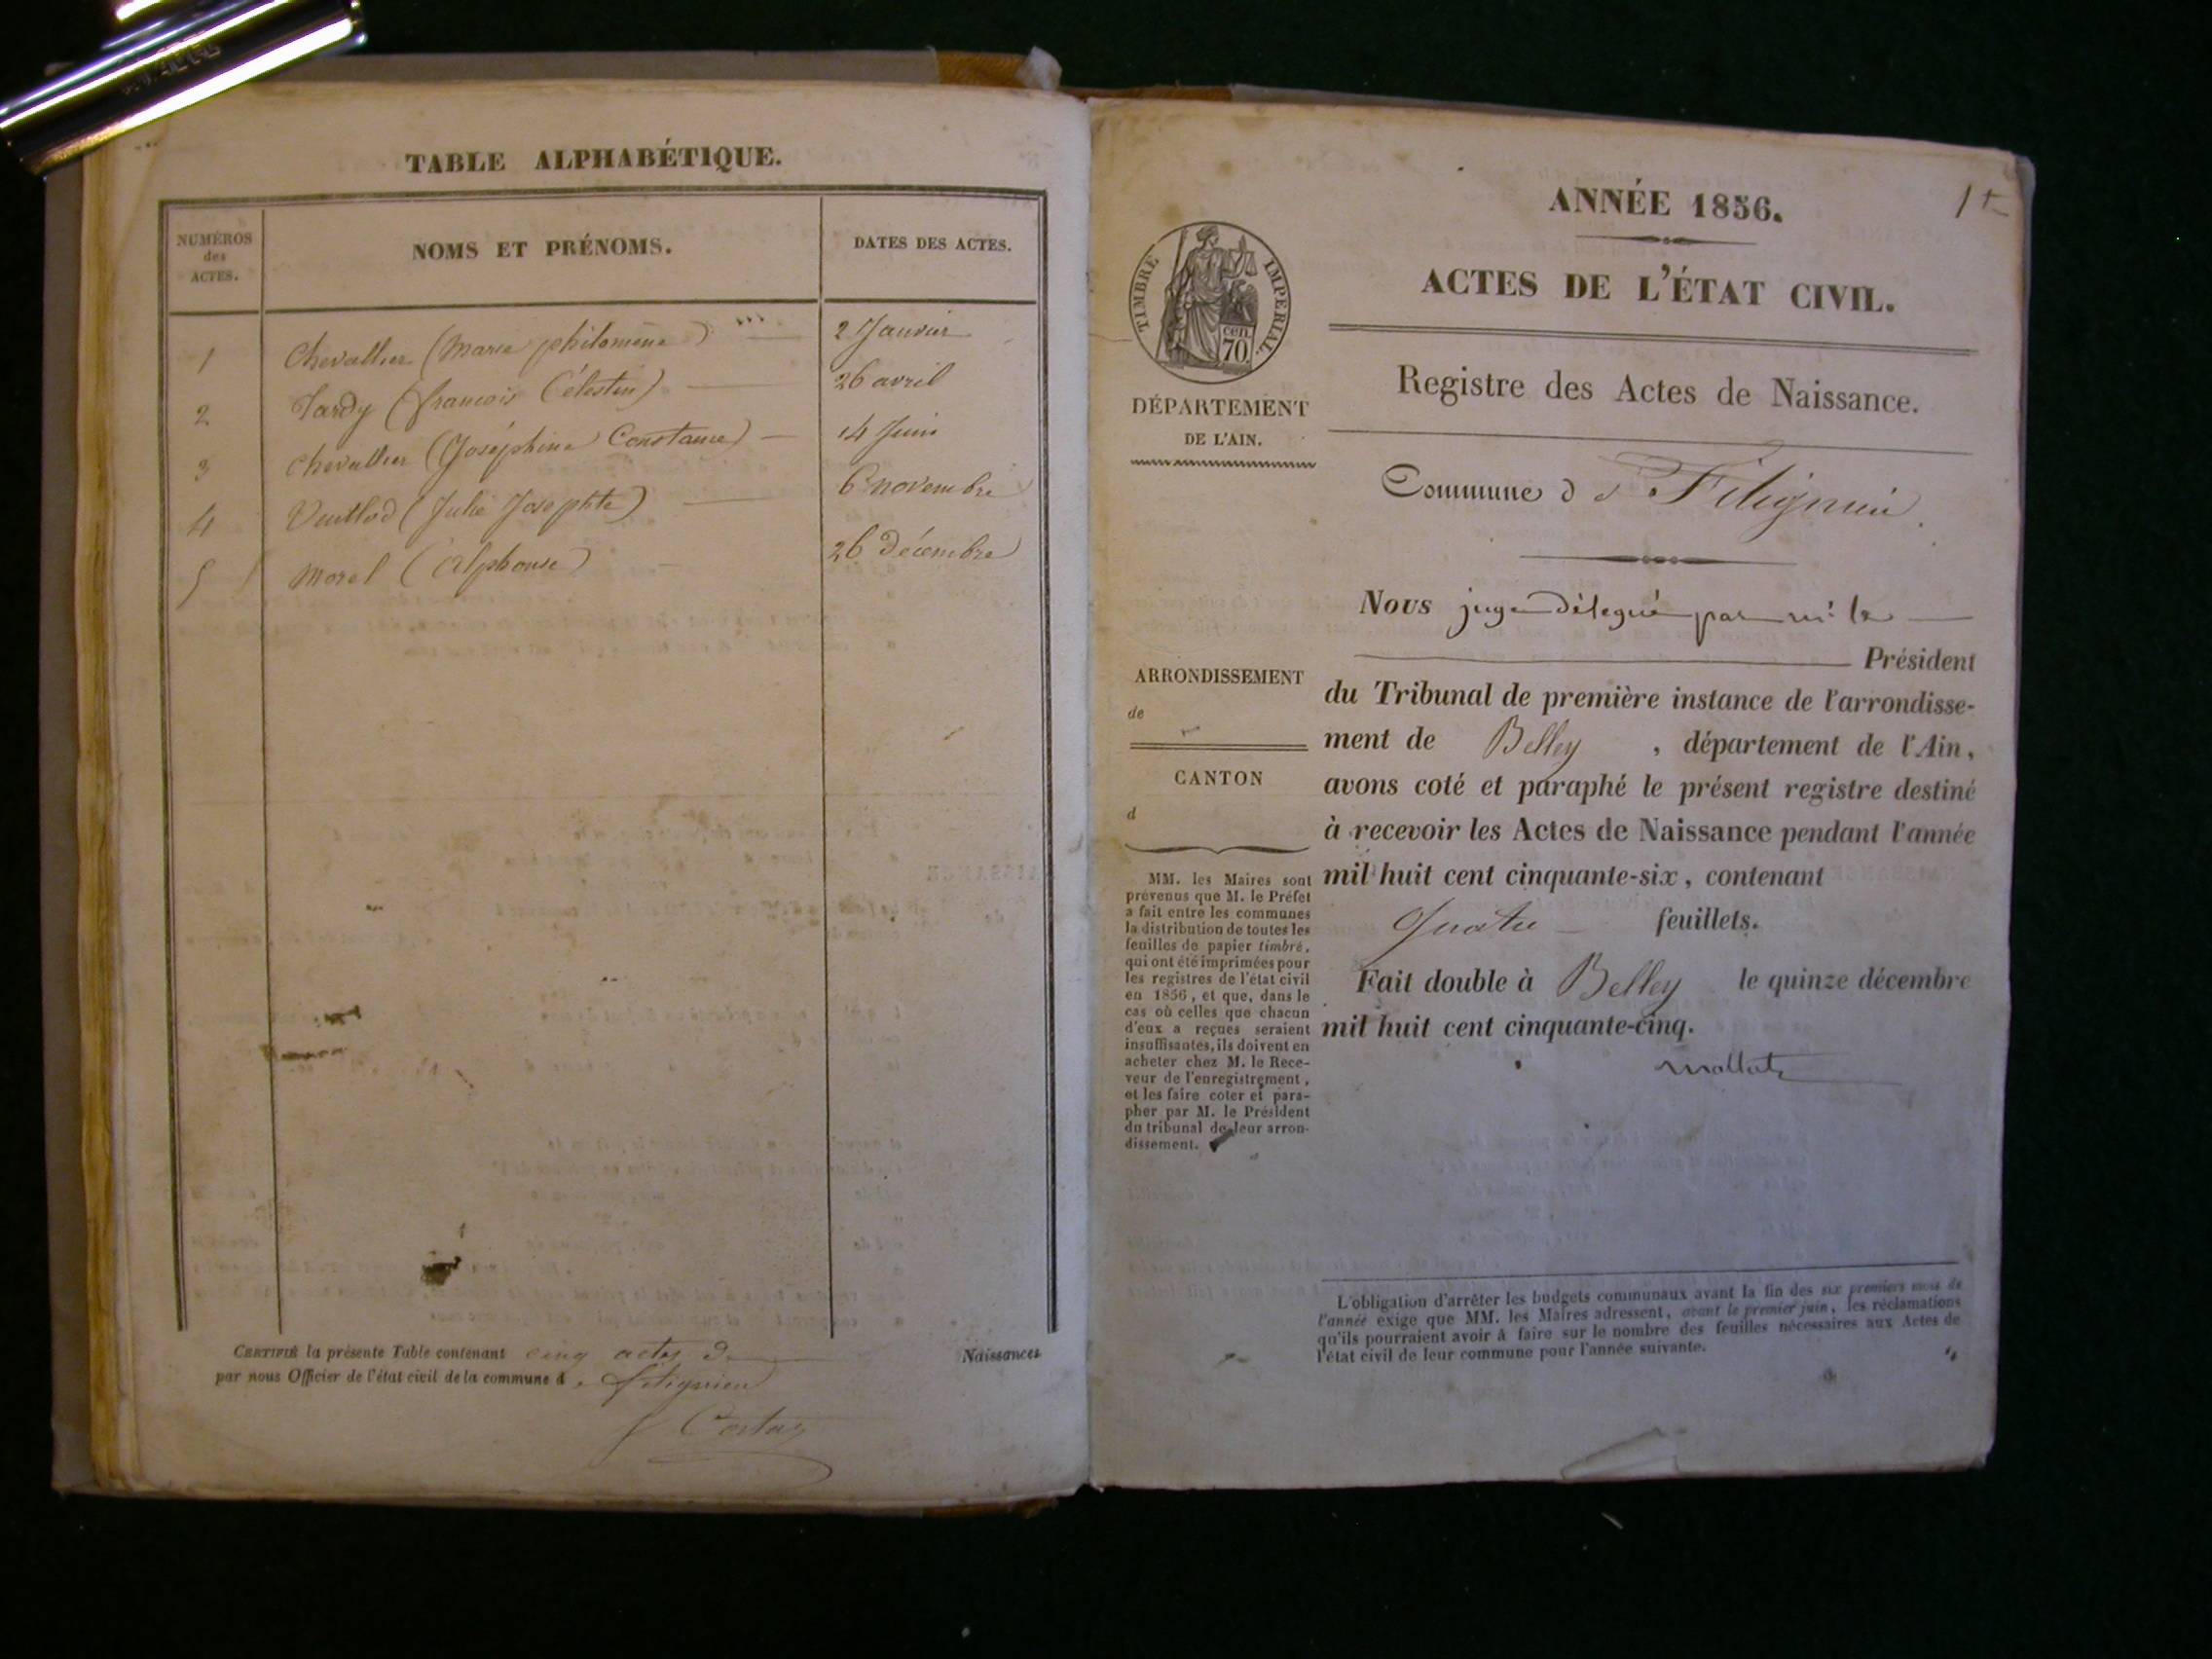 TABLE ALPHABÉTIQUE.
NUMÉROS
des
ACTES.
NOMS ET PRÉNOMS.
DATES DES ACTES.
1 Chevallier (Marie philomène) 2 Janvier
2 Tardy (francois Célestin) 26 avril
3 Chevallier (Joséphine Constance) 14 Juin
4 (Julie Josephte) 6 novembre
5 Morel (Alphonse) 26 Décembre
CERTIFIÉ la présente Table contenant cinq actes de Naissances
par nous Officier de l'état civil de la commune d
ANNÉE 1856.
ACTES DE L'ÉTAT CIVIL.
TIMBRE IMPERIAL.
cen.
70.
DÉPARTEMENT
DE L'AIN.
Registre des Actes de Naissance.
Commune d
Nous juge délégué par mr le
Président
ARRONDISSEMENT
de
CANTON
d
du Tribunal de première instance de l'arrondisse-
ment de Belley, département de l'Ain,
avons coté et paraphé le présent registre destiné
à recevoir les Actes de Naissance pendant l'année
mil huit cent cinquante-six, contenant
quatre feuillets.
Fait double à Belley le quinze décembre
mil huit cent cinquante-cinq.
MM. les Maires sont
prévenus que M. le Préfet
a fait entre les communes
la distribution de toutes les
feuilles de papier timbré,
qui ont été imprimées pour
les registres de l'état civil
en 1856, et que, dans le
cas où celles que chacun
d'eux a reçues seraient
insuffisantes, ils doivent en
acheter chez M. le Rece-
veur de l'enregistrement,
et les faire coter et para-
pher par M. le Président
du tribunal de leur arron-
dissement.
L'obligation d'arrêter les budgets communaux avant la fin des six premiers mois de
l'année exige que MM. les Maires adressent, avant le premier juin, les réclamations
qu'ils pourraient avoir à faire sur le nombre des feuilles nécessaires aux Actes de
l'état civil de leur commune pour l'année suivante.